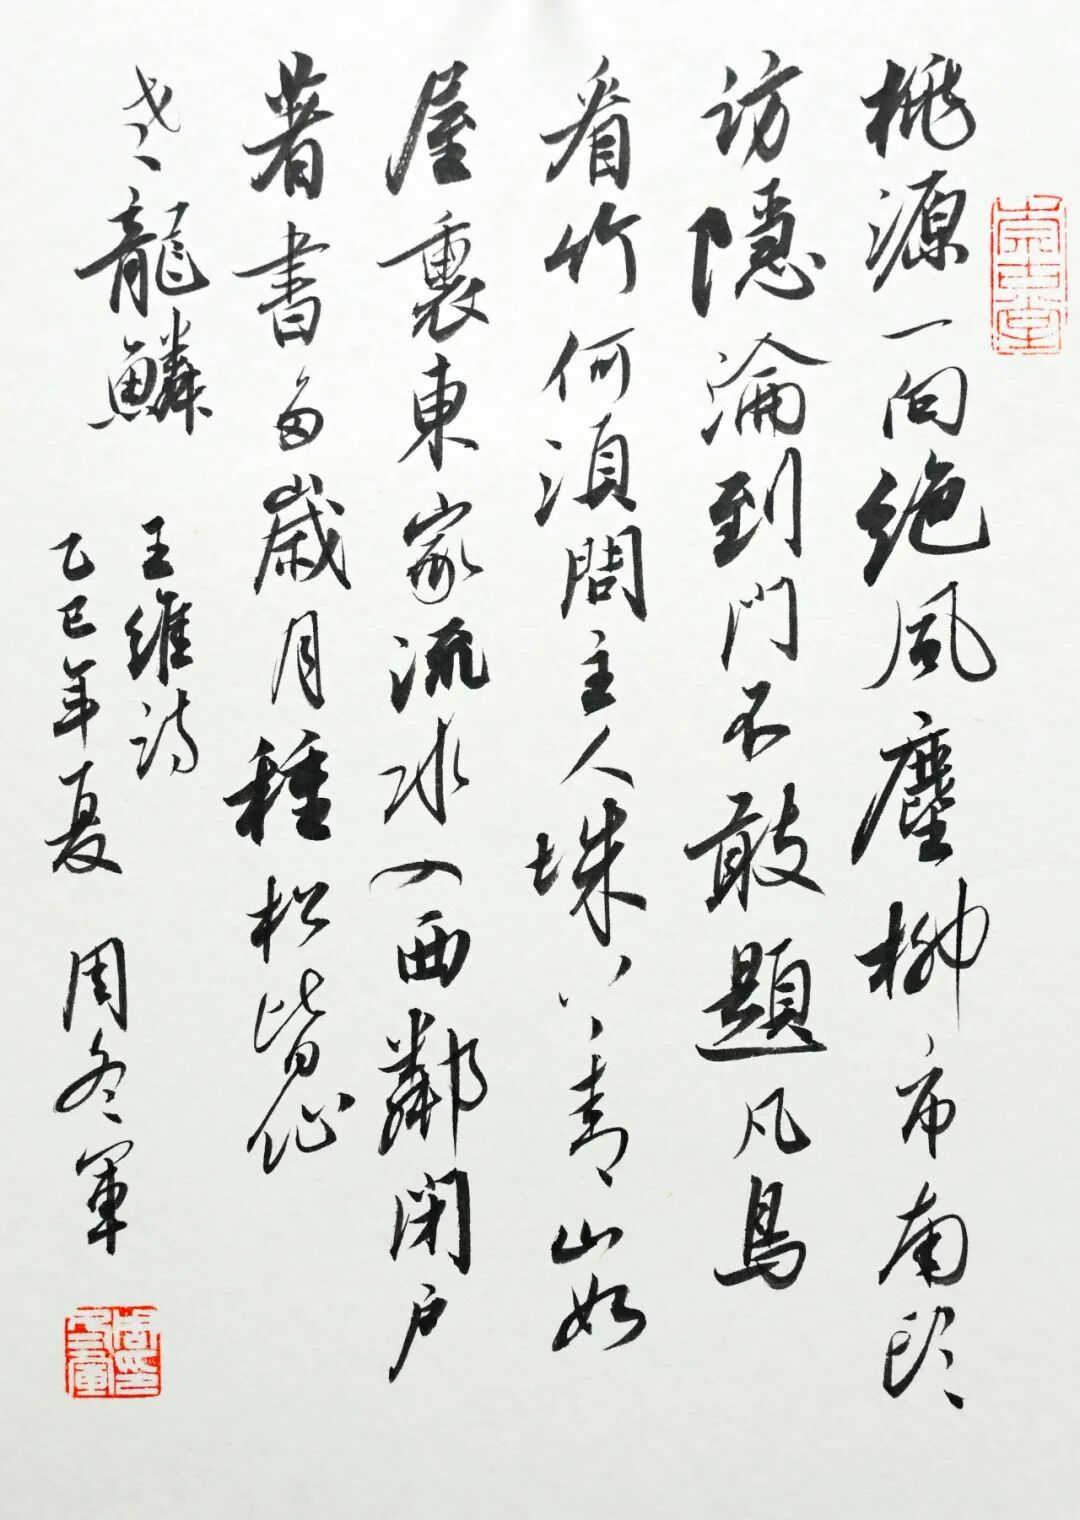 桃源一向絕風塵柳市南頭
訪隱淪到門不敢題凡鳥
看竹何須問主人城外青山如
屋裏東家流水入西鄰閉户
著書多歲月種松皆作
老龍鱗
王維詩
乙巳年夏 周冬軍